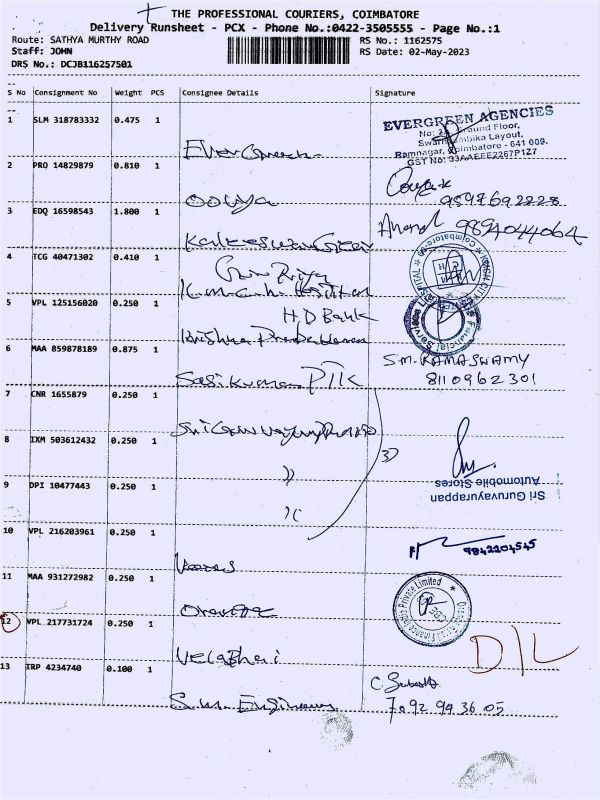 THE PROFESSIONAL COURIERS, COIMBATORE
Delivery Runsheet - PCX - Phone No.:0422-3505555 - Page No.:1
Route: SATHYA MURTHY ROAD RS No.: 1162575
Staff: JOHN RS Date: 02-May-2023
DRS No.: DCJB116257501
S No Consignment No Weight PCS Consignee Details Signature
1 SLM 318783332 0.475 1
EVERGREEN AGENCIES
Ground Floor,
Layout,
Ramnagar, Coimbatore - 641 009.
GST No: 33AAEEE2267P1Z7
Evergreen
2 PRO 14829879 0.810 1
9597692228
3 EDQ 16598543 1.800 1
Anand 9894044064
4 TCG 40471302 0.410 1
HOSPITAL
5 VPL 125156020 0.250 1
HD Bank
Krishna
Financial Services
6 MAA 859878189 0.875 1
S.M. RAMASWAMY
8110962301
Sasikumar
7 CNR 1655879 0.250 1
3)
8 IXM 503612432 0.250 1
Sri Guruvayurappan
Automobile Stores
9 DPI 10477443 0.250 1
10 VPL 216203961 0.250 1
9842204545
11 MAA 931272982 0.250 1
Finance India Private Limited
12 VPL 217731724 0.250 1
D/L
Velabhai
13 TRP 4234740 0.100 1
7092 94 36 05
S.M. Engineers